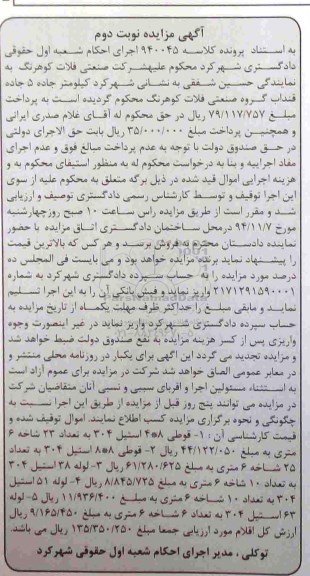 آگهی مزایده نوبت دوم
به استناد پرونده کلاسه ۹۴۰۰۴۵ اجرای احکام شعبه اول حقوقی
دادگستری شهرکرد محکوم علیه شرکت صنعتی فلات کوهرنگ به
نمایندگی حسین شفقی به نشانی شهرکرد کیلومتر جاده ۵ جاده
قنداب گروه صنعتی فلات کوهرنگ محکوم گردیده است به پرداخت
مبلغ ۷۹/۱۱۷/۷۵۷ ریال در حق محکوم له آقای غلام صدری ایرانی
و همچنین پرداخت مبلغ ۳۵/۰۰۰/۰۰۰ ریال بابت حق الاجرای دولتی
در حق صندوق دولت با توجه به عدم پرداخت مبالغ فوق و عدم اجرای
مفاد اجراییه و بنا به درخواست محکوم له به منظور استیفای محکوم به و
هزینه اجرایی اموال قید شده در ذیل برگه متعلق به محکوم علیه از سوی
این اجرا توقیف و توسط کارشناس رسمی دادگستری توصیف و ارزیابی
شد و مقرر است از طریق مزایده راس ساعت ۱۰ صبح روز چهارشنبه
مورخ ۹۴/۱۱/۷ درمحل ساختمان دادگستری اتاق مزایده با حضور
نماینده دادستان محترم به فروش برسد و هر کس که بالاترین قیمت
را پیشنهاد نماید برنده مزایده خواهد بود و می بایست فی المجلس ده
درصد مورد مزایده را به حساب سپرده دادگستری شهرکرد به شماره
۲۱۷۱۲۹۱۵۹۰۰۰۱ واریز نماید و فیش بانکی آن را به این اجرا تسلیم
نماید و مابقی مبلغ را حداکثر ظرف مهلت یکماه از تاریخ مزایده به
حساب سپرده دادگستری شهرکرد واریز نماید در غیر اینصورت وجوه
واریزی پس از کسر هزینه مزایده به نفع صندوق دولت ضبط خواهد شد
و مزایده تجدید می گردد این آگهی برای یکبار در روزنامه محلی منتشر و
در معابر عمومی الصاق خواهد شد شرکت در مزایده برای عموم آزاد است
به استثناء مسئولین اجرا و اقربای سببی و نسبی آنان متقاضیان شرکت
در مزایده می توانند پنج روز قبل از مزایده از طریق این اجرا نسبت به
چگونگی و نحوه برگزاری مزایده کسب اطلاع نمایند. اموال توقیف شده و
قیمت کارشناسی آن : ۱- قوطی ۸*۴ استیل ۳۰۴ به تعداد ۲۳ شاخه ۶
متری به مبلغ ۴۴/۱۲۲/۰۵۰ ریال ۲- قوطی ۸*۸ استیل ۳۰۴ به تعداد
۲۵ شاخه ۶ متری به مبلغ ۶۱/۲۸۰/۶۲۵ ریال ۳- لوله ۳۸ استیل ۳۰۴
به تعداد ۱۰ شاخه ۶ متری به مبلغ ۸/۸۴۵/۷۲۵ ریال ۴- لوله ۵۱ استیل
۳۰۴ به تعداد ۱۰ شاخه ۶ متری به مبلغ ۱۱/۹۳۶/۴۰۰ ریال ۵- لوله
۶۳ استیل ۳۰۴ به تعداد ۶ شاخه ۶ متری به مبلغ ۹/۱۶۵/۴۵۰ ریال و
ارزش کل اقلام مورد ارزیابی جمعا مبلغ ۱۳۵/۳۵۰/۲۵۰ ریال می باشد.
توکلی ، مدیر اجرای احکام شعبه اول حقوقی شهرکرد